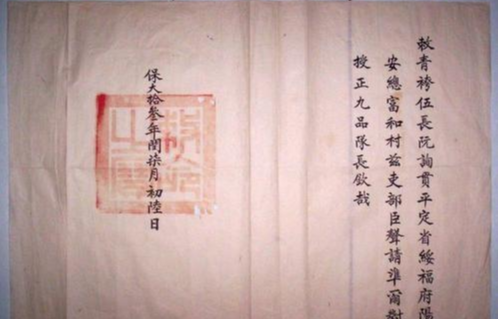 敕青袴伍長阮詢貫平定省綏福府陽
安總富和村茲吏部臣聲請準爾對
授正九品隊長欽哉
保大拾叁年閏柒月初陸日